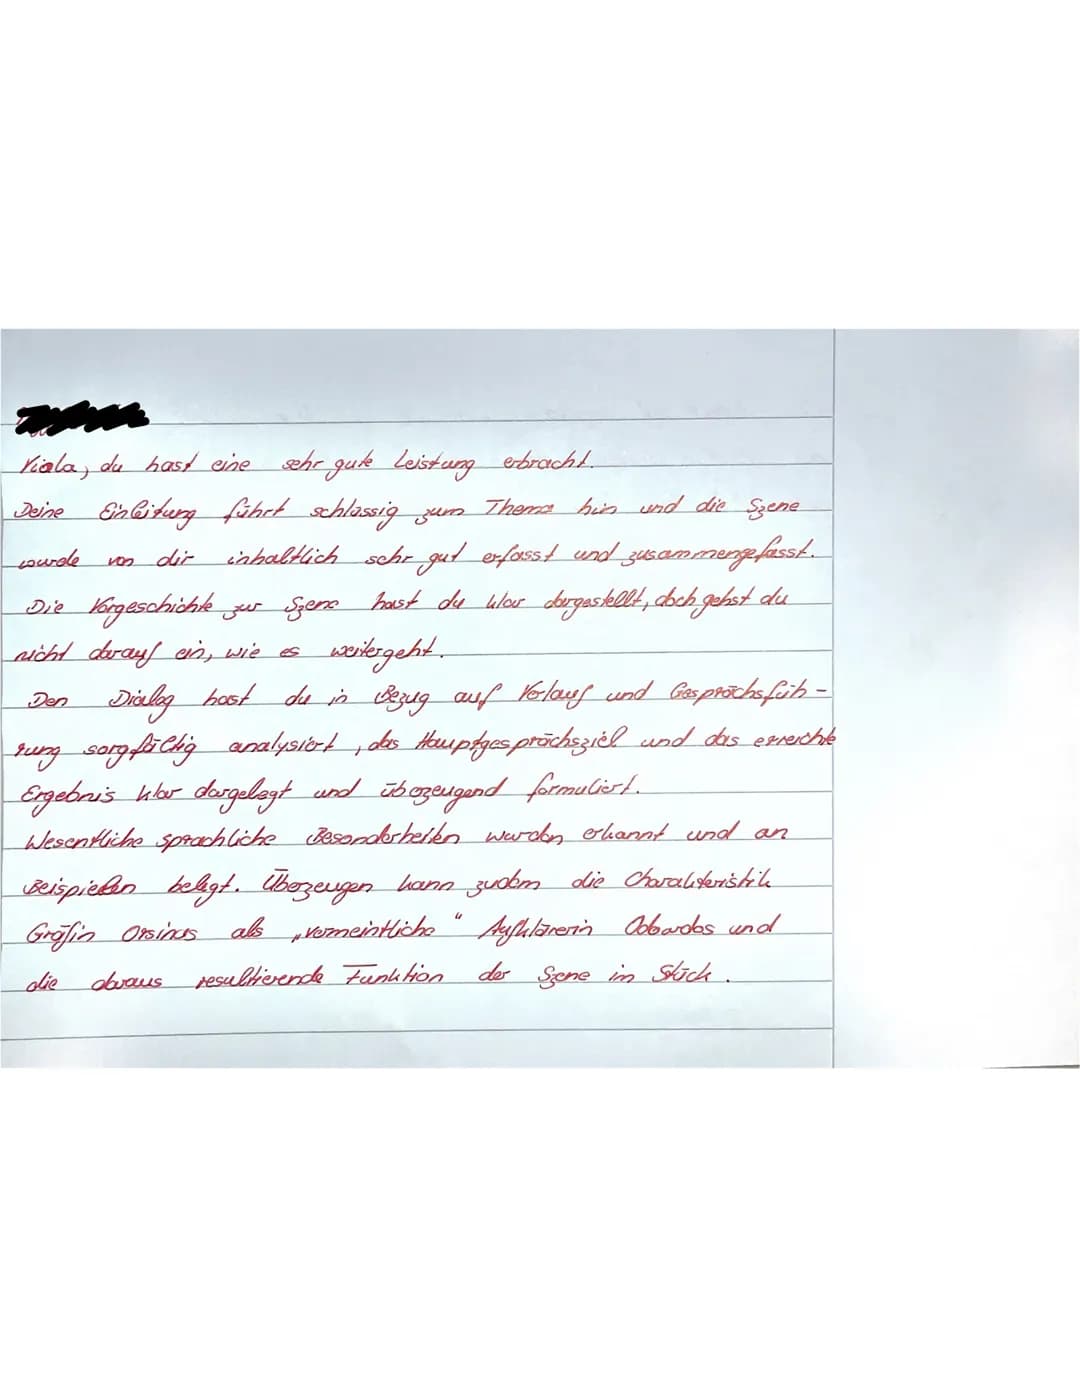 Viola, du hast eine sehr gute Leistung erbracht.
Deine Einleitung führt schlüssig zum Thema hin und die Szene
wurde von dir inhaltlich sehr gut erfasst und zusammengefasst.
Die Vorgeschichte zur Szene hast du klar dargestellt, doch gehst du
nicht darauf ein, wie es weitergeht.
Den Dialog hast du in Bezug auf Verlauf und Gesprächsfüh-
rung sorgfältig analysiert, das Hauptgesprächsziel und das erreichte
Ergebnis klar dargelegt und überzeugend formuliert.
Wesentliche sprachliche Besonderheiten wurden erkannt und an
Beispielen belegt. Überzeugen kann zudem die Charakteristik
Gräfin Orsinas als „vermeintliche" Aufklärerin Odoardos und
die daraus resultierende Funktion der Szene im Stück.